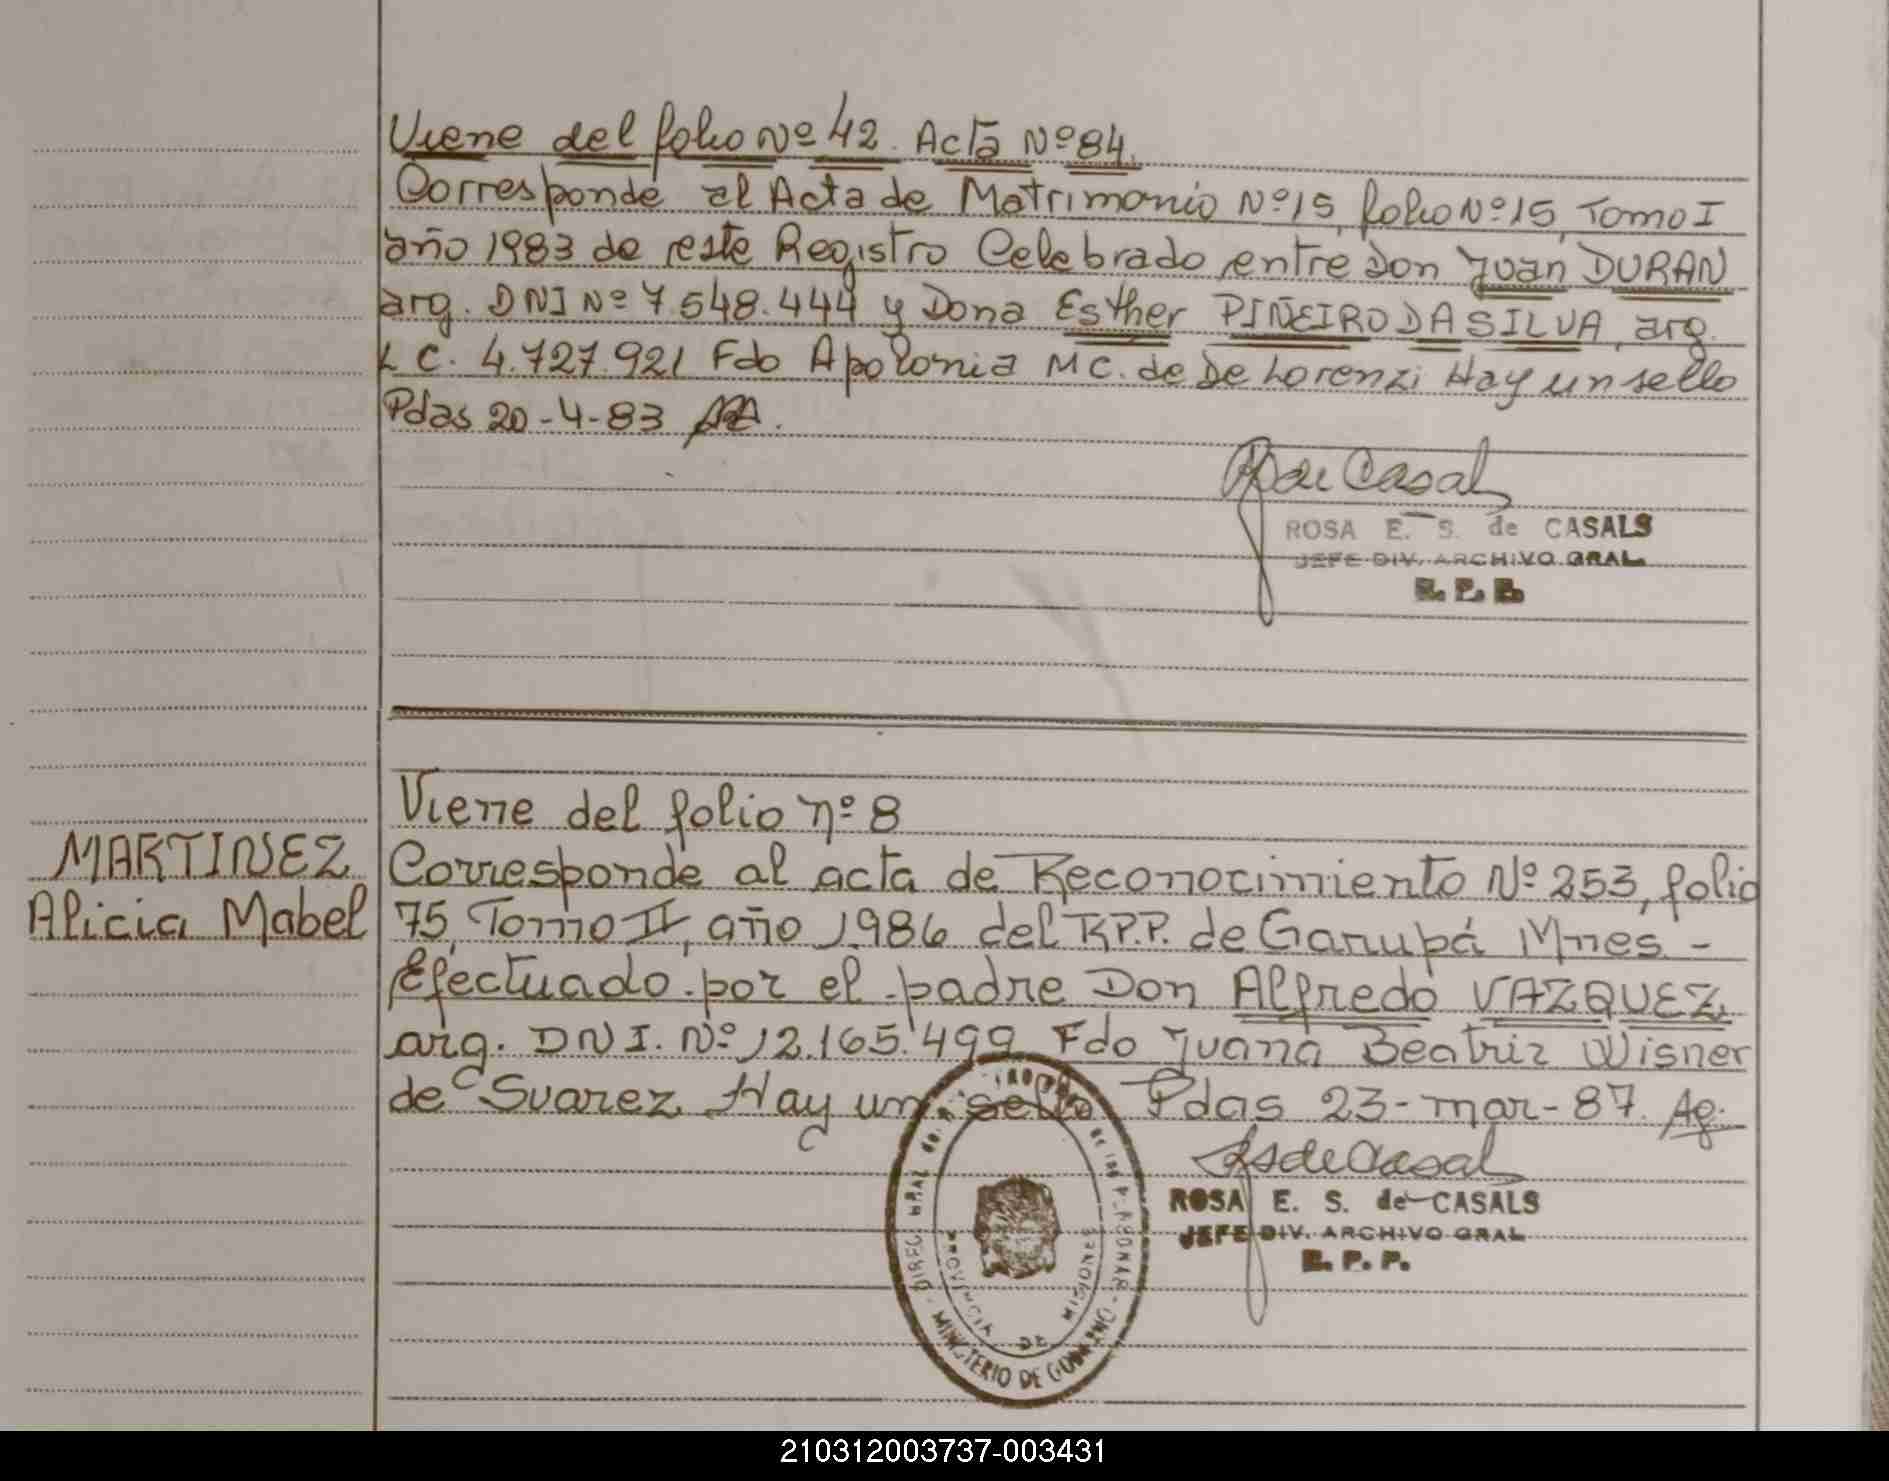 Viene del folio Nº 42. Acta Nº 84.
Corresponde al Acta de Matrimonio Nº 15, folio Nº 15, Tomo I
año 1983 de este Registro Celebrado entre Don Juan DURAN
arg. DNI Nº 7.548.444 y Dona Esther PIÑEIRO DA SILVA, arg.
L C. 4.727.921 Fdo Apolonia MC. de De Lorenzi Hay un sello
Pdas 20-4-83
de Casal
ROSA E. S. de CASALS
JEFE DIV. ARCHIVO GRAL.
R. P. P.
Viene del folio nº 8
MARTINEZ
Alicia Mabel
Corresponde al acta de Reconocimiento Nº 253, folio
75, Tomo II, año 1.986 del R.P.P. de Garupá Mnes -
Efectuado por el padre Don Alfredo VAZQUEZ,
arg. DNI. Nº 12.165.499 Fdo Juana Beatriz Wisner
de Suarez Hay un sello Pdas 23-mar-87. Ag.
de Casal
ROSA E. S. de CASALS
JEFE DIV. ARCHIVO GRAL
R. P. P.
PROVINCIA DE MISIONES
MINISTERIO DE GOBIERNO
210312003737-003431